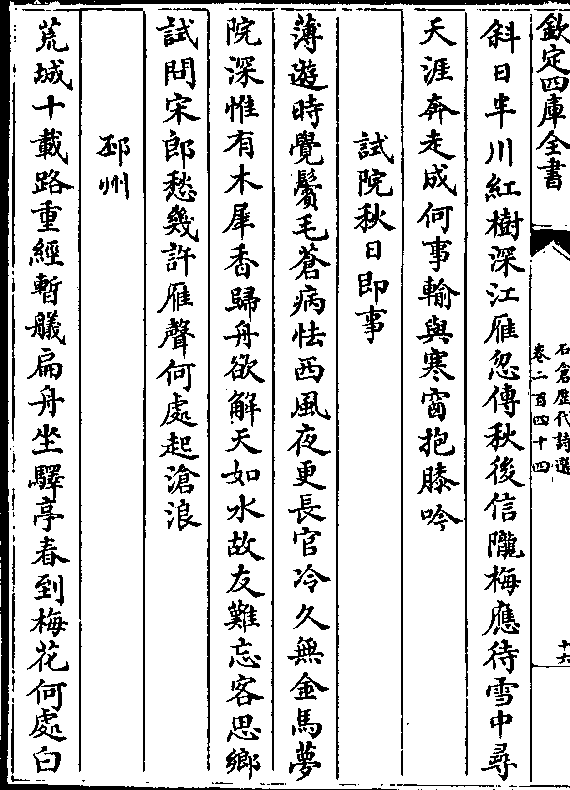 欽定四庫全書
石倉歴代詩選
卷二百四十四
十六
斜日半川紅樹深江雁忽傳秋後信隴梅應待雪中尋
天涯奔走成何事輸與寒窗抱膝吟
試院秋日即事
薄遊時覺鬢毛蒼病怯西風夜更長官冷久無金馬夢
院深惟有木犀香歸舟欲解天如水故友難忘客思鄉
試問宋郎愁幾許雁聲何處起滄浪
邳州
荒城十載路重經暫艤扁舟坐驛亭春到梅花何處白